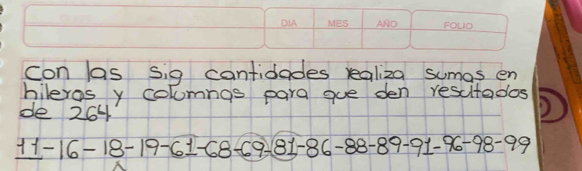 DIA MES AÑO FOLIO
con las sig cantidades realiza sumas en
hileras y columnas para que den resultados
de 264
11-16-18-19-61-68-69-81-86-88-89-91-96-98-99